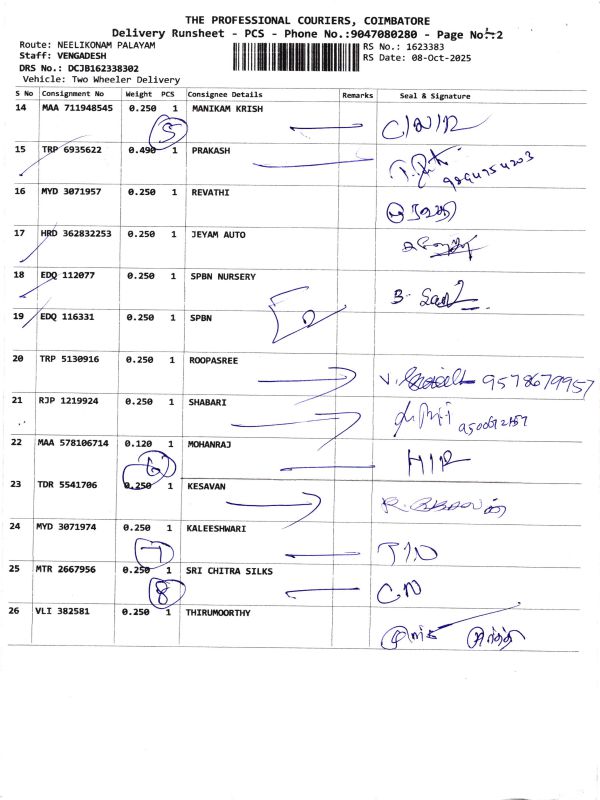 THE PROFESSIONAL COURIERS, COIMBATORE
Delivery Runsheet - PCS - Phone No.:9047080280 - Page No.:2
Route: NEELIKONAM PALAYAM
RS No.: 1623383
Staff: VENGADESH
RS Date: 08-Oct-2025
DRS No.: DCJB162338302
Vehicle: Two Wheeler Delivery
S No Consignment No Weight PCS Consignee Details Remarks Seal & Signature
14 MAA 711948545 0.250 1 MANIKAM KRISH
5
15 TRP 6935622 0.490 1 PRAKASH
16 MYD 3071957 0.250 1 REVATHI
17 HRD 362832253 0.250 1 JEYAM AUTO
18 EDQ 112077 0.250 1 SPBN NURSERY
19 EDQ 116331 0.250 1 SPBN
20 TRP 5130916 0.250 1 ROOPASREE
9578679957
21 RJP 1219924 0.250 1 SHABARI
22 MAA 578106714 0.120 1 MOHANRAJ
6
23 TDR 5541706 0.250 1 KESAVAN
24 MYD 3071974 0.250 1 KALEESHWARI
7
25 MTR 2667956 0.250 1 SRI CHITRA SILKS
8
26 VLI 382581 0.250 1 THIRUMOORTHY